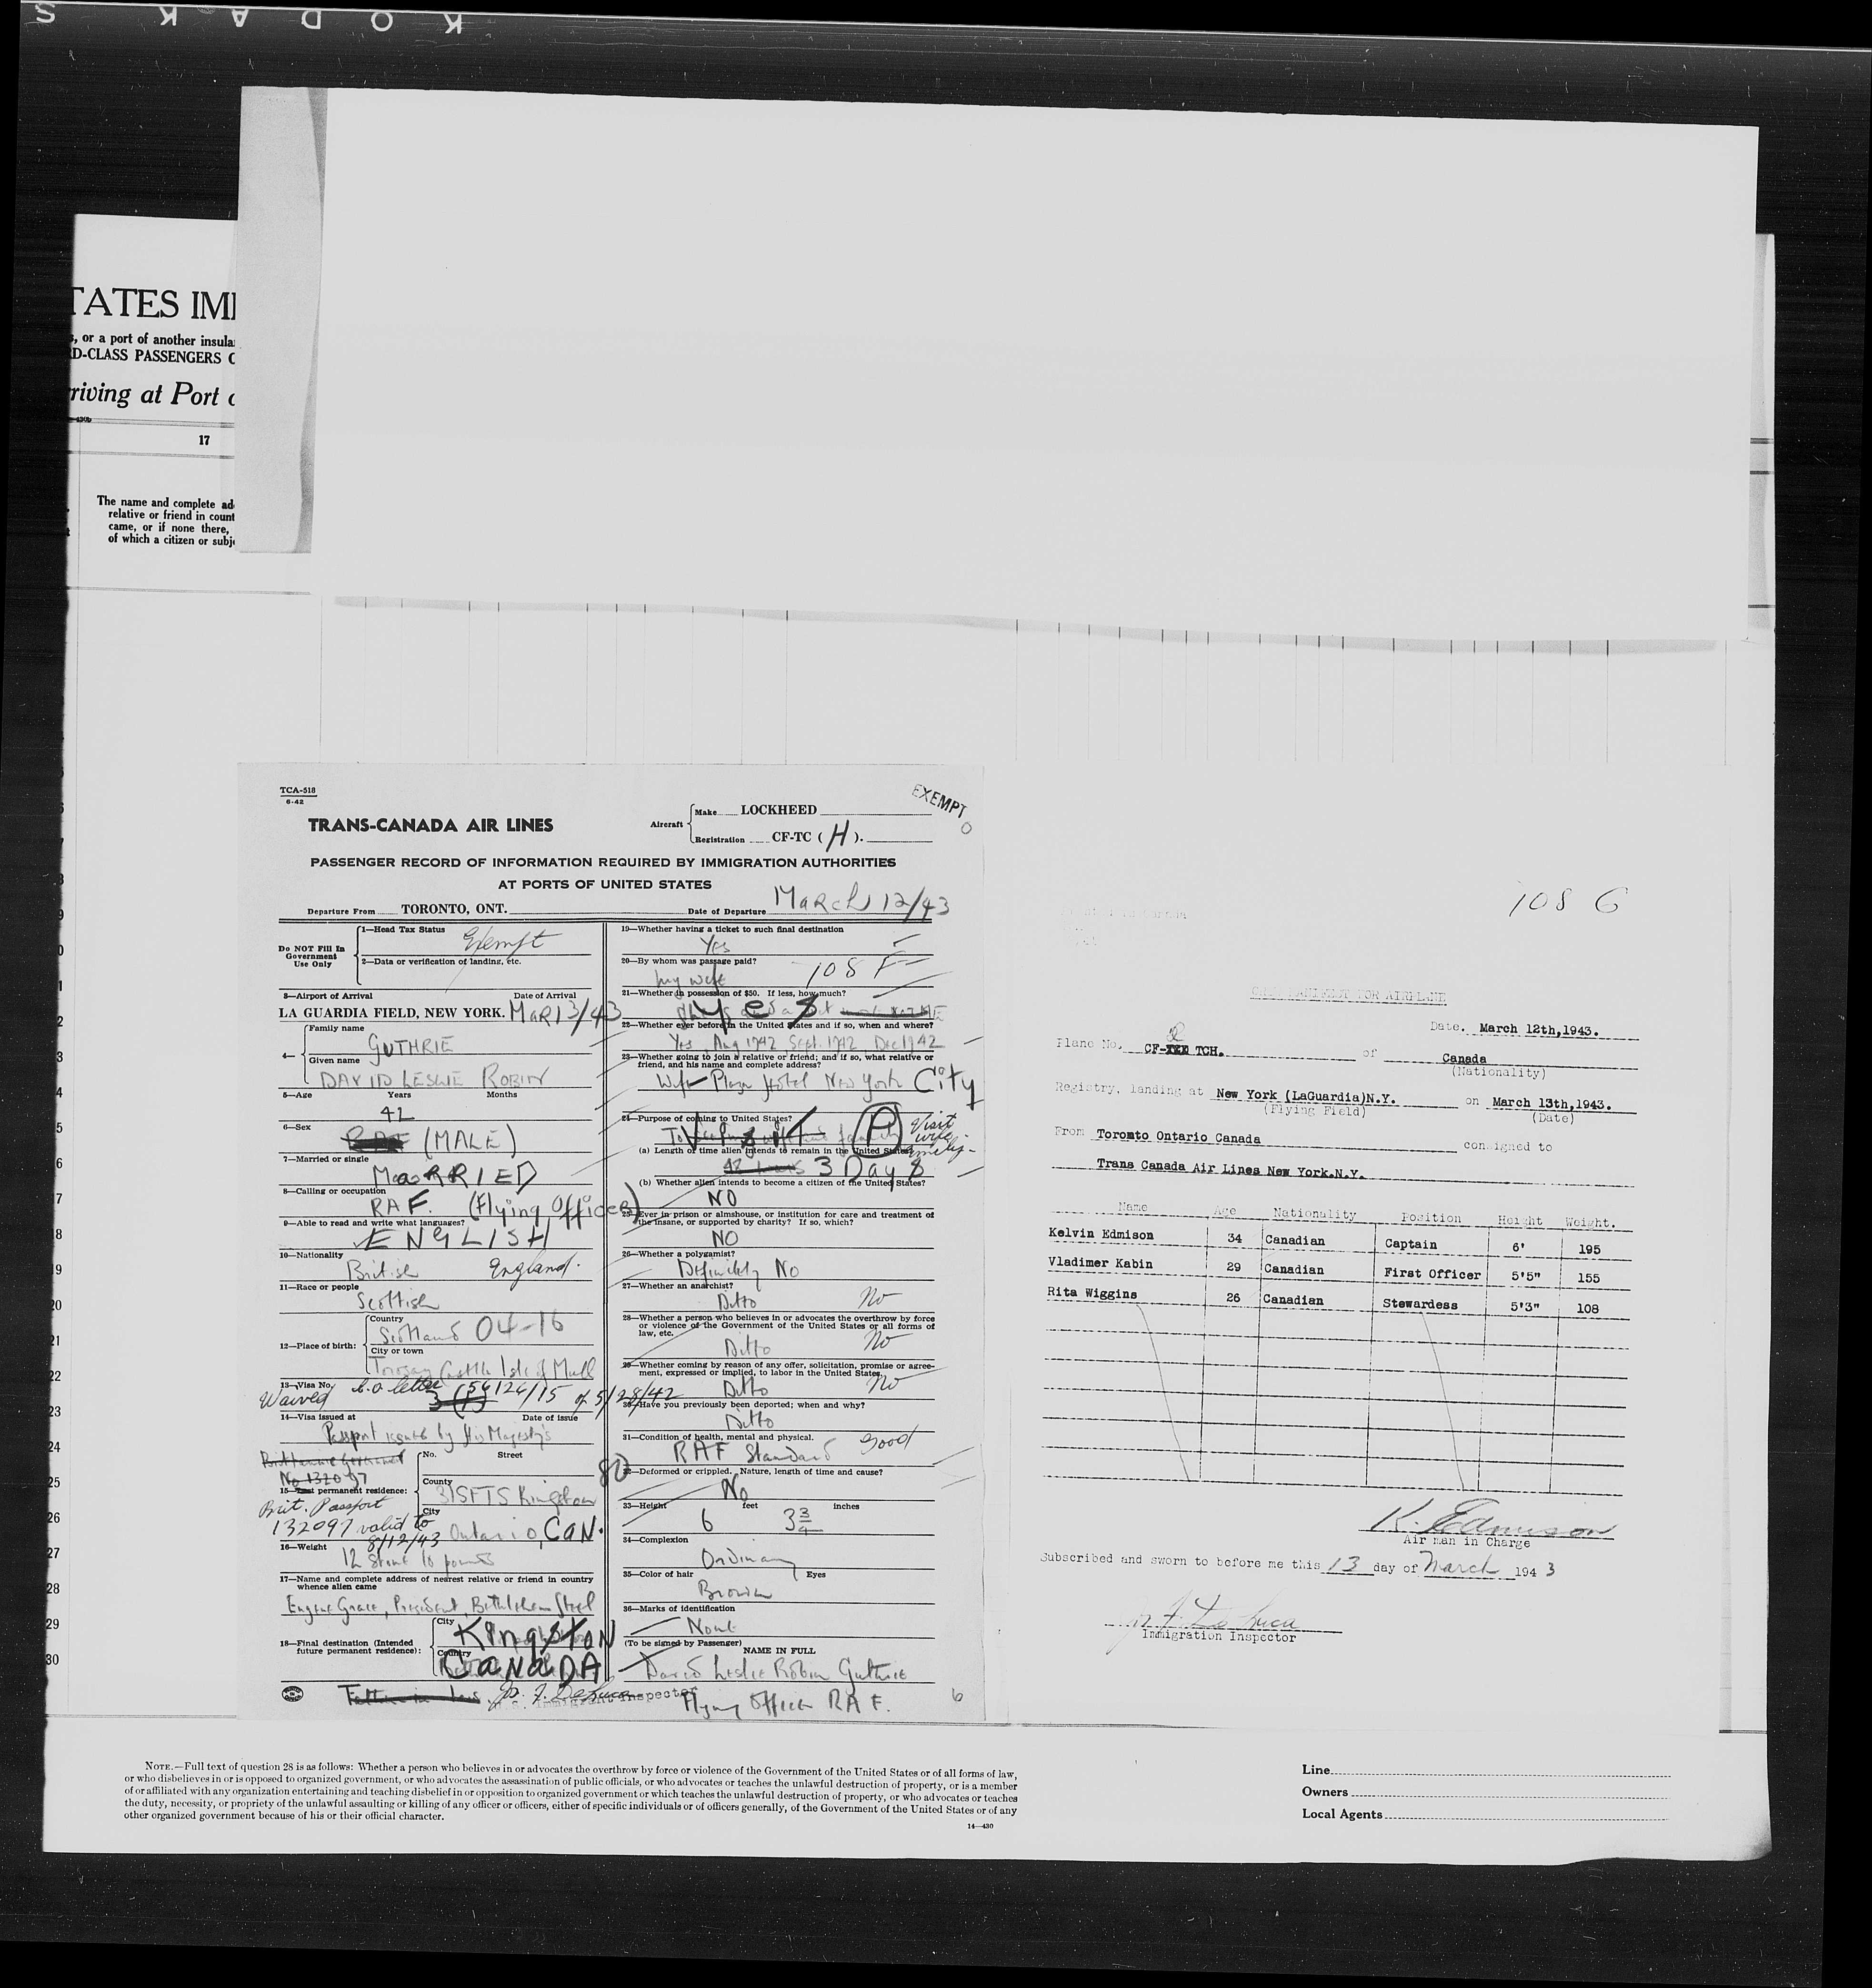 S K A D O K
TATES IMI
s, or a port of another insula
RD-CLASS PASSENGERS O
riving at Port o
17
The name and complete ad
relative or friend in count
came, or if none there,
of which a citizen or subj
TCA-518
6-42
EXEMPT
TRANS-CANADA AIR LINES
Aircraft
Make LOCKHEED
Registration CF-TC (H).
PASSENGER RECORD OF INFORMATION REQUIRED BY IMMIGRATION AUTHORITIES
AT PORTS OF UNITED STATES
Departure From TORONTO, ONT. Date of Departure March 12/43
Do NOT Fill In
Government
Use Only
1—Head Tax Status
Exempt
2—Data or verification of landing, etc.
3—Airport of Arrival Date of Arrival
LA GUARDIA FIELD, NEW YORK. MAR 13/43
4— Family name
GUTHRIE
Given name
DAVID LESLIE ROBIN
5—Age Years Months
42
6—Sex
(MALE)
7—Married or single
MARRIED
8—Calling or occupation
RAF. (Flying Officer)
9—Able to read and write what languages?
ENGLISH
10—Nationality
British England.
11—Race or people
Scottish
12—Place of birth:
Country
Scotland 04-16
City or town
Torosay Castle Isle of Mull
13—Visa No.
Waived C.O. letter 56126/15 of 5/28/42
14—Visa issued at Date of issue
Passport issued by His Majesty's
Brittannic Government
No 132097
15—Last permanent residence:
No. Street
County
31 SFTS Kingston
City
Ontario, CAN.
Brit. Passport
132097 valid to
8/12/43
16—Weight
12 Stone 10 pounds
17—Name and complete address of nearest relative or friend in country
whence alien came
Eugene Grace, President, Bethlehem Steel
18—Final destination (Intended
future permanent residence):
City
Kingston
Country
CANADA
Jos. F. DeLuca
Immigrant Inspector
19—Whether having a ticket to such final destination
Yes
20—By whom was passage paid?
My wife 108 F
21—Whether in possession of $50. If less, how much?
Yes
22—Whether ever before in the United States and if so, when and where?
Yes, Aug 1942 Sept. 1942 Dec 1942
23—Whether going to join a relative or friend; and if so, what relative or
friend, and his name and complete address?
Wife Plaza Hotel New York City
24—Purpose of coming to United States?
Visit (P) Visit
wife
(a) Length of time alien intends to remain in the United States
3 Days
(b) Whether alien intends to become a citizen of the United States?
NO
25—Ever in prison or almshouse, or institution for care and treatment of
the insane, or supported by charity? If so, which?
NO
26—Whether a polygamist?
Definitely No
27—Whether an anarchist?
Ditto No
28—Whether a person who believes in or advocates the overthrow by force
or violence of the Government of the United States or all forms of
law, etc.
Ditto No
29—Whether coming by reason of any offer, solicitation, promise or agree-
ment, expressed or implied, to labor in the United States.
Ditto No
30—Have you previously been deported; when and why?
Ditto
31—Condition of health, mental and physical.
RAF Standard Good
32—Deformed or crippled. Nature, length of time and cause?
No
33—Height feet inches
6 3 3/4
34—Complexion
Ordinary
35—Color of hair Eyes
Brown
36—Marks of identification
None
(To be signed by Passenger)
NAME IN FULL
David Leslie Robin Guthrie
Flying Officer RAF.
6
108 G
CREW MANIFEST FOR AIRPLANE
Date. March 12th,1943.
Plane No. CF- TCH. of Canada
(Nationality)
Registry, landing at New York (LaGuardia)N.Y. on March 13th,1943.
(Flying Field) (Date)
From Toronto Ontario Canada consigned to
Trans Canada Air Lines New York.N.Y.
Name Age Nationality Position Height Weight.
Kelvin Edmison 34 Canadian Captain 6' 195
Vladimer Kabin 29 Canadian First Officer 5'5" 155
Rita Wiggins 26 Canadian Stewardess 5'3" 108
K. Edmison
Air man in Charge
Subscribed and sworn to before me this 13 day of March 1943
F. DeLuca
Immigration Inspector
NOTE.—Full text of question 28 is as follows: Whether a person who believes in or advocates the overthrow by force or violence of the Government of the United States or of all forms of law,
or who disbelieves in or is opposed to organized government, or who advocates the assassination of public officials, or who advocates or teaches the unlawful destruction of property, or is a member
of or affiliated with any organization entertaining and teaching disbelief in or opposition to organized government or which teaches the unlawful destruction of property, or who advocates or teaches
the duty, necessity, or propriety of the unlawful assaulting or killing of any officer or officers, either of specific individuals or of officers generally, of the Government of the United States or of any
other organized government because of his or their official character.
14—430
Line
Owners
Local Agents